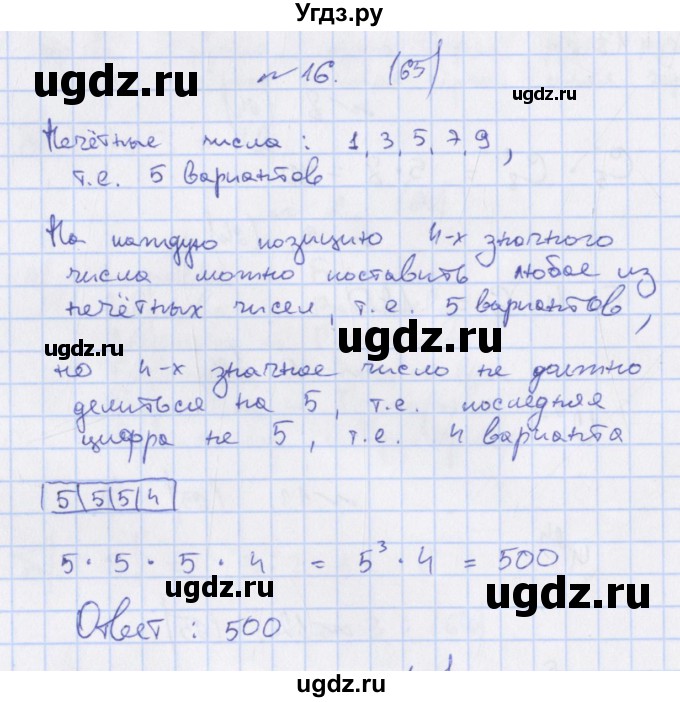 Угдз.ру
ugdz.ru ugdz.ru
№ 16. (65)
Нечётные числа : 1, 3, 5, 7, 9,
т.е. 5 вариантов
На каждую позицию 4-х значного
числа можно поставить любое из
нечётных чисел, т.е. 5 вариантов,
ugdz.ru ugdz.ru
но 4-х значное число не должно
делиться на 5, т.е. последняя
цифра не 5, т.е. 4 варианта
5 5 5 4
5 · 5 · 5 · 4 = 5³ · 4 = 500
ugdz.ru ugdz.ru
Ответ : 500
ugdz.ru